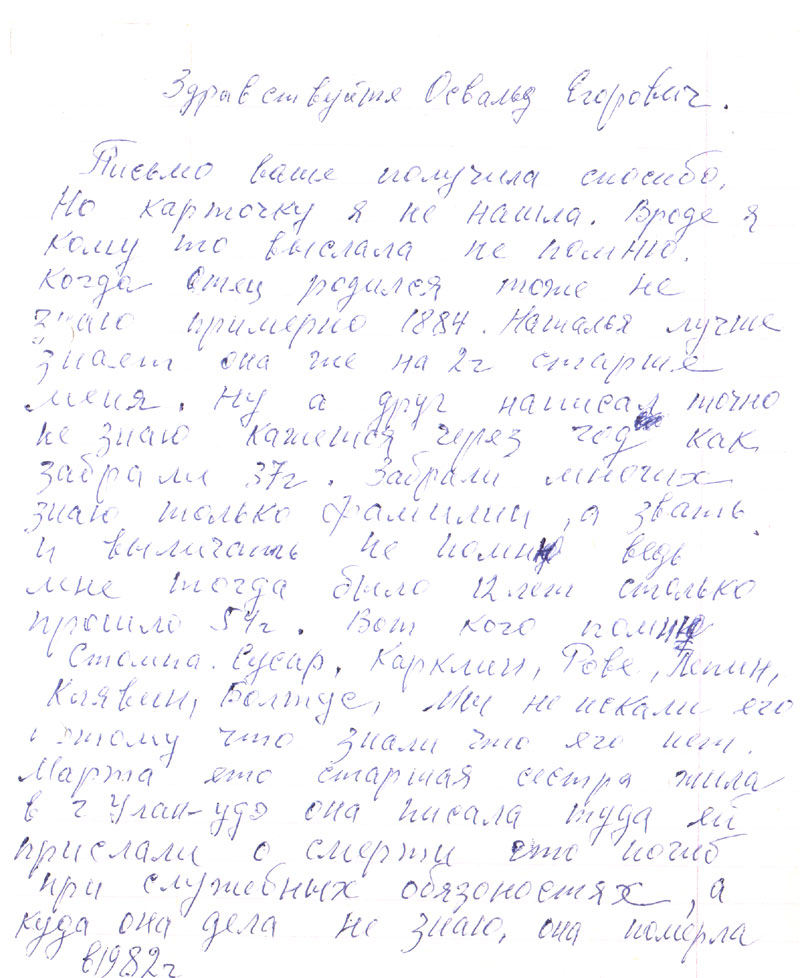 Здравствуйтя Освальд Егорович.
Письмо ваше получила спосибо.
Но карточку я не нашла. Вроде я
кому то выслала не помню.
Когда отец родился тоже не
знаю примерно 1884. Наталья лучше
знает она же на 2г старше
меня. Ну а друг написал точно
не знаю кажется через год как
забрали 37г. Забрали многих
знаю только фамилии, а звать
и выличать не помню ведь
мне тогда было 12 лет столько
прошло 54г. Вот кого помню
Стомпа. Сусир, Карклин, Рове, Лепин,
Клявин, Болтус, Мы не искали его
потому что знали что яго нет.
Марта ето старшая сестра жила
в г Улан-удэ она писала туда ей
прислали о смерти что погиб
при служебных обязоностях, а
куда она дела не знаю, она померла
в 1982г